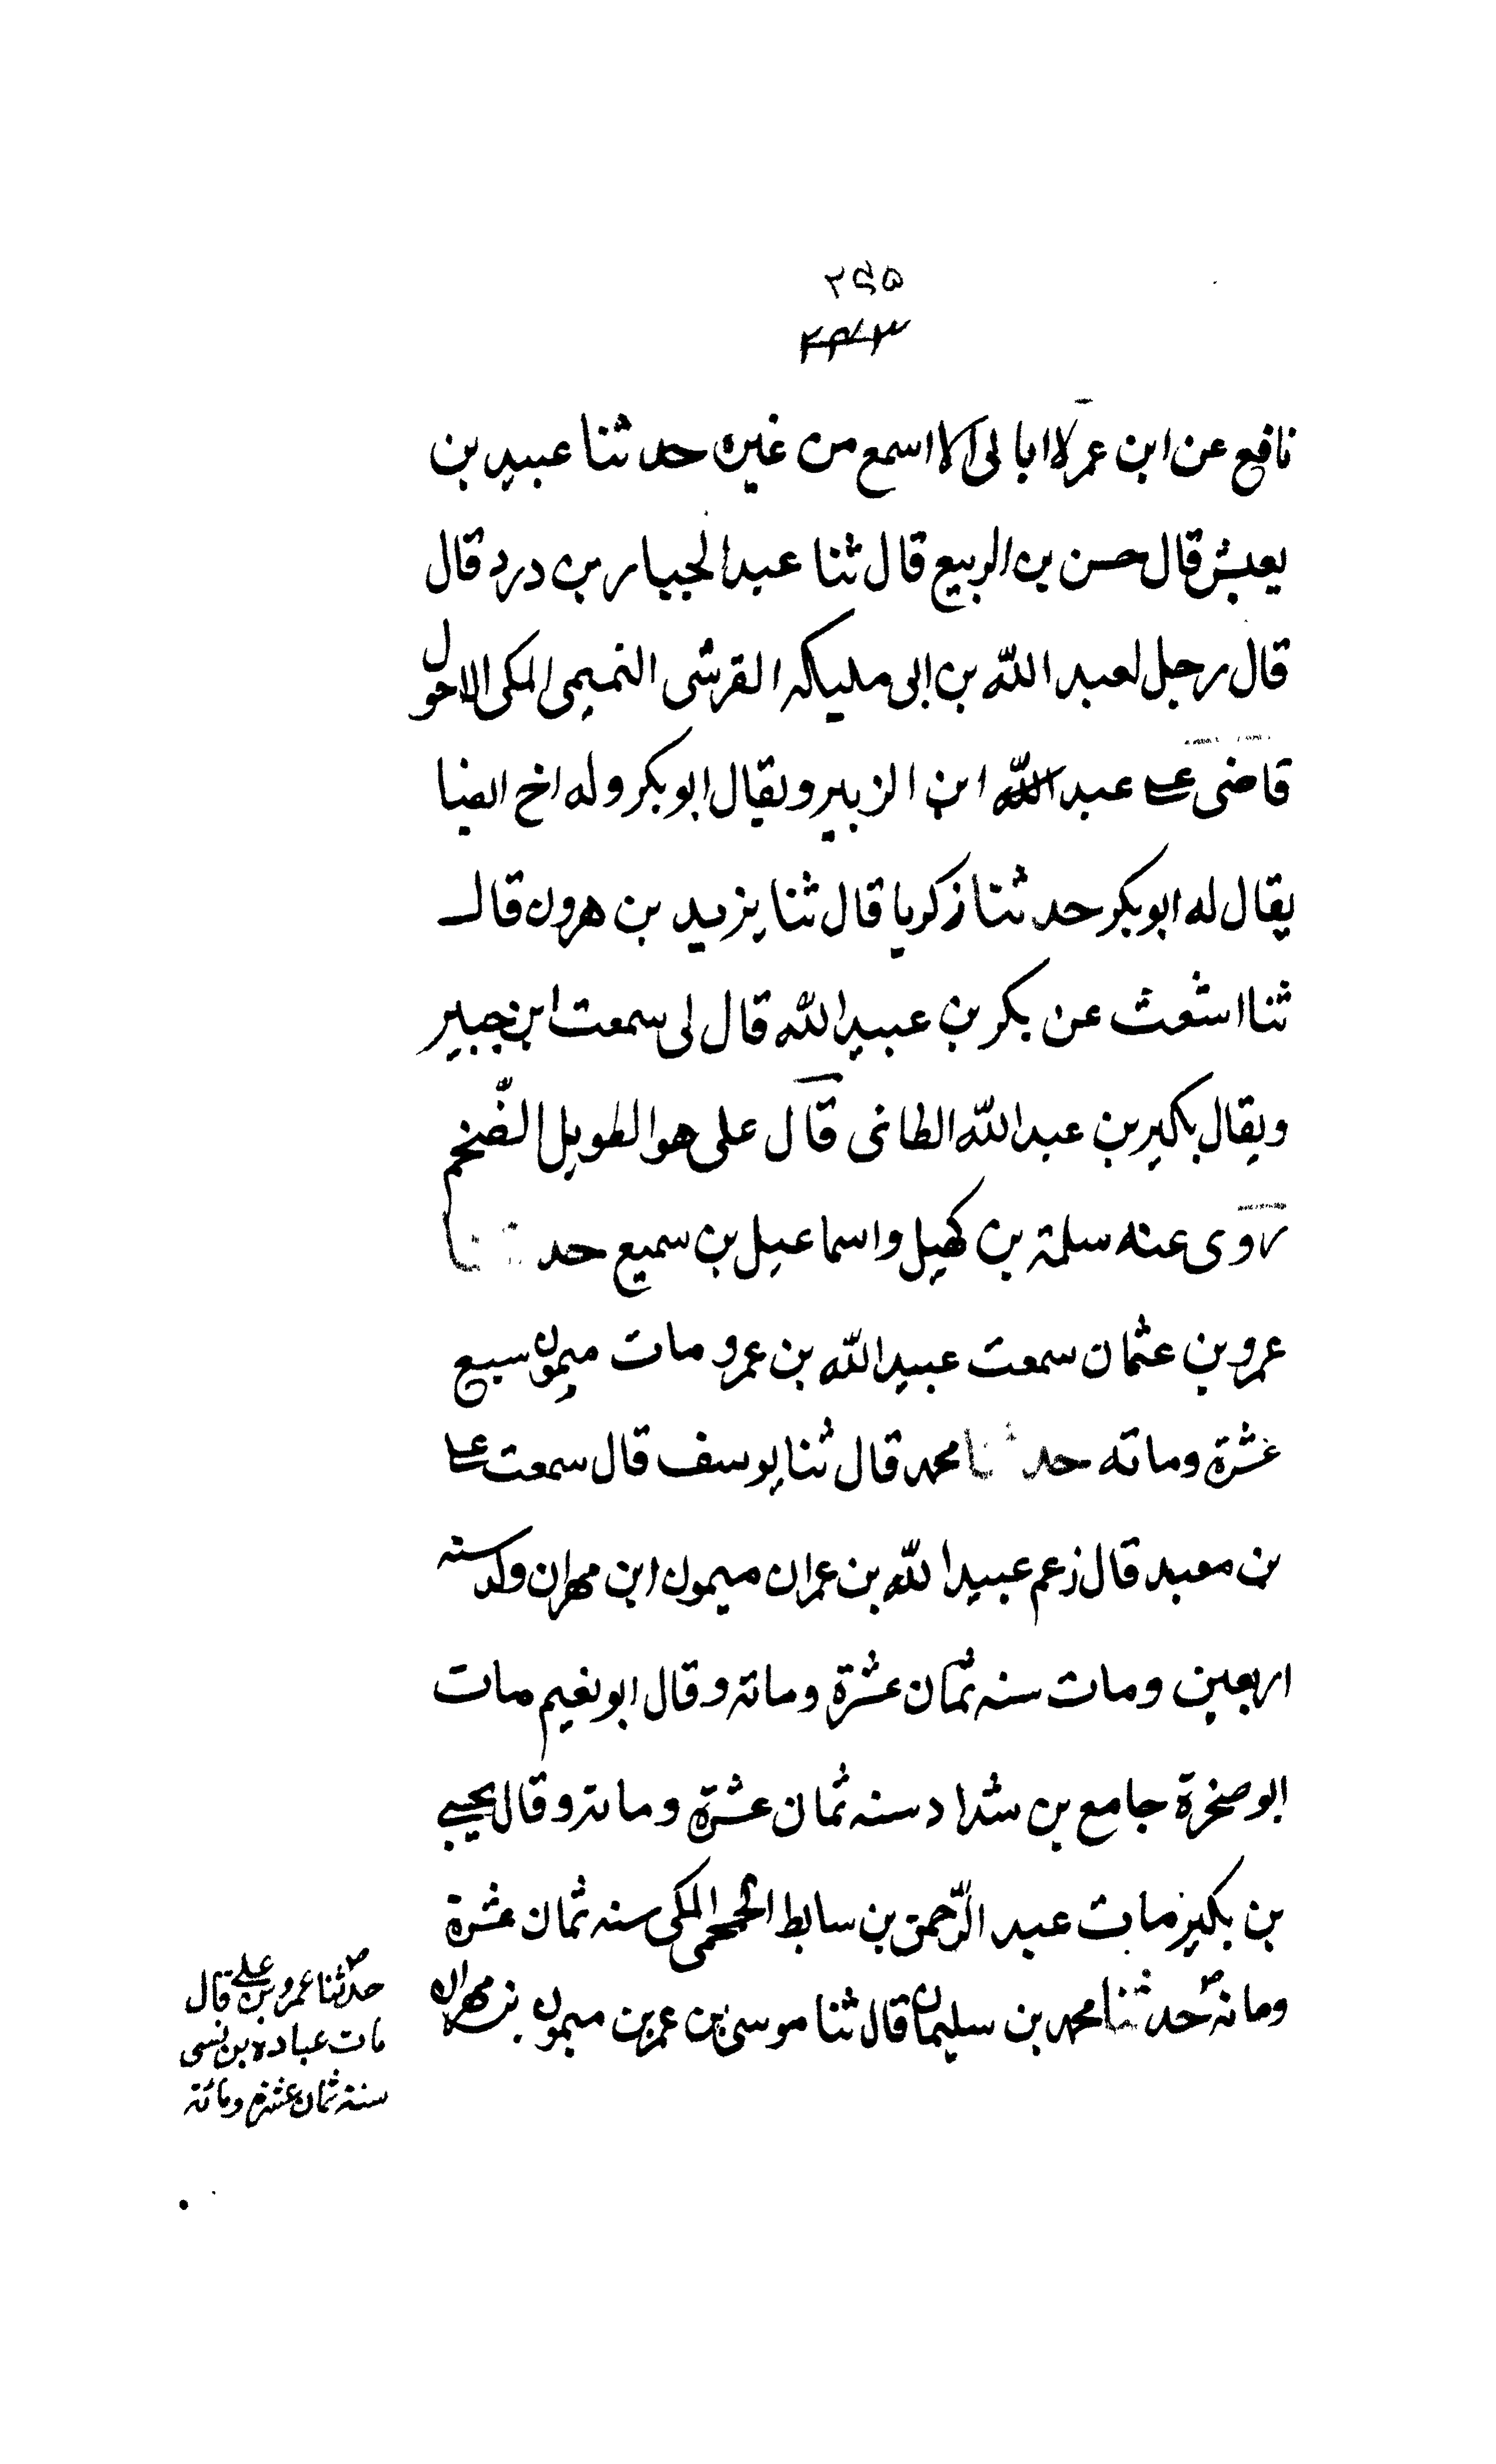 ٢٤٥
٢٤٣
نافع عن ابن عمر لا ابالى الا اسمع من غيره حدثنا عبيد بن
يعيش قال حسن بن الربيع قال ثنا عبد الجبار بن درد قال
قال رجل لعبد الله بن ابى مليكه القرشى التميمى المكى الاحول
قاضى على عبد الله ابن الزبير ويقال ابو بكر وله اخ ايضا
يقال له ابو بكر حدثنا زكريا قال ثنا يزيد بن هرون قال
ثنا اشعث عن بكر بن عبيد الله قال لى سمعت ابن جبير
ويقال بكير بن عبد الله الطائى قال على هو الطويل الضّخم
روى عنه سلمة بن كهيل واسماعيل بن سميع حدثنا
عمرو بن عثمان سمعت عبيد الله بن عمرو مات ميمون سبع
عشرة ومائه حدثنا محمد قال ثنا يوسف قال سمعت على
بن معبد قال زعم عبيد الله بن عمر ان ميمون ابن مهران ولد سنه
اربعين ومات سنه ثمان عشرة ومائة وقال ابو نعيم مات
ابو صخرة جامع بن شداد سنه ثمان عشرة ومائة وقال يحيى
بن بكير مات عبد الرّحمن بن سابط الجمحى المكى سنه ثمان عشرة
ومائة حدثنا محمد بن سليمان قال ثنا موسى بن عمر بن ميمون بن مهران
حدثنا عمرو بن على قال
مات عبادة بن نسى
سنة ثمان عشرة ومائة